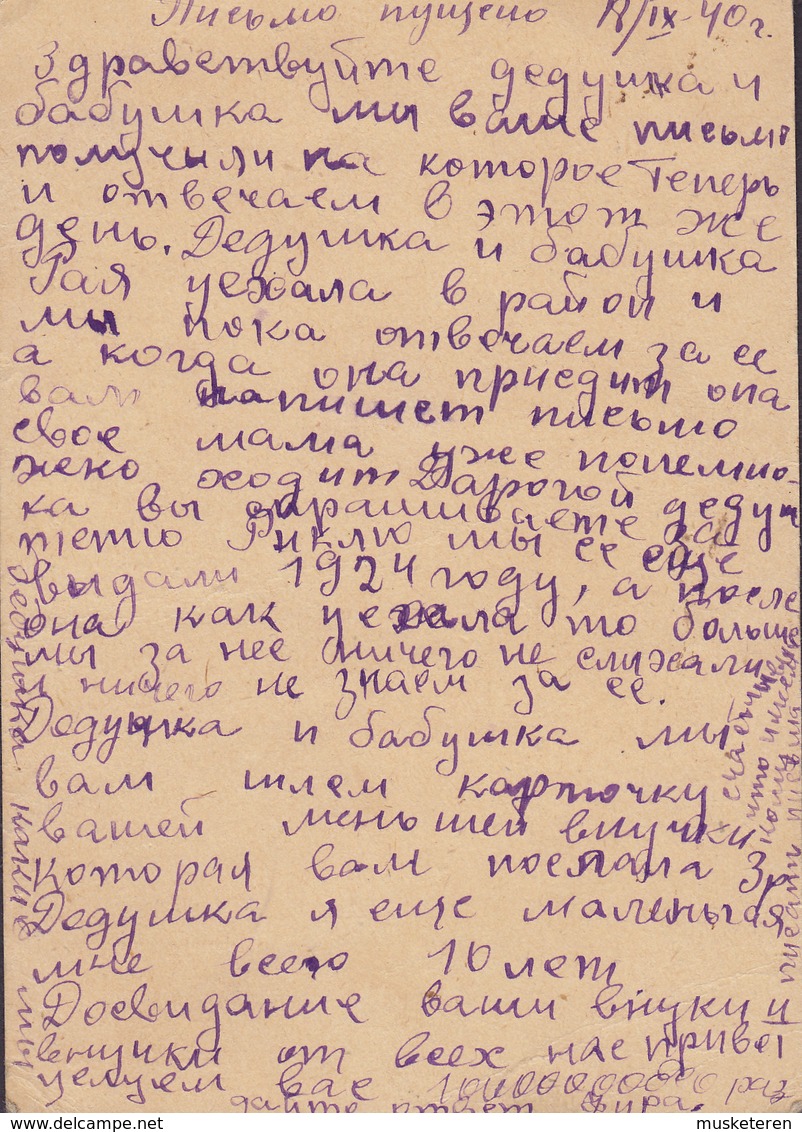 Письмо пущено 18/IX-40 г.
Здравствуйте дедушка и
бабушка мы ваше письмо
получили на которое Теперь
и отвечаем в этот же
день. Дедушка и бабушка
Рая уехала в район и
мы пока отвечаем за ее
а когда она приедит она
вам напишет письмо
свое мама уже понемно-
жко ходит Дарогой дедуш
ка вы спрашиваете за
тетю Риклю мы ее еще
выдали 1924 году, а после
она как уехала то больше
мы за нее ничего не слихали
и ничего не знаем за ее.
Дедушка и бабушка мы
вам шлем карточку
вашей меньшей внучки
которая вам послала
Дедушка я еще маленькая
мне всего 10 лет
Досвидание ваши внуки и
внучки от всех нас привет
целуем вас 10000000000 раз
дайте ответ
Дедушка какие мы
счастливые
что
кому
писать письма
musketeren